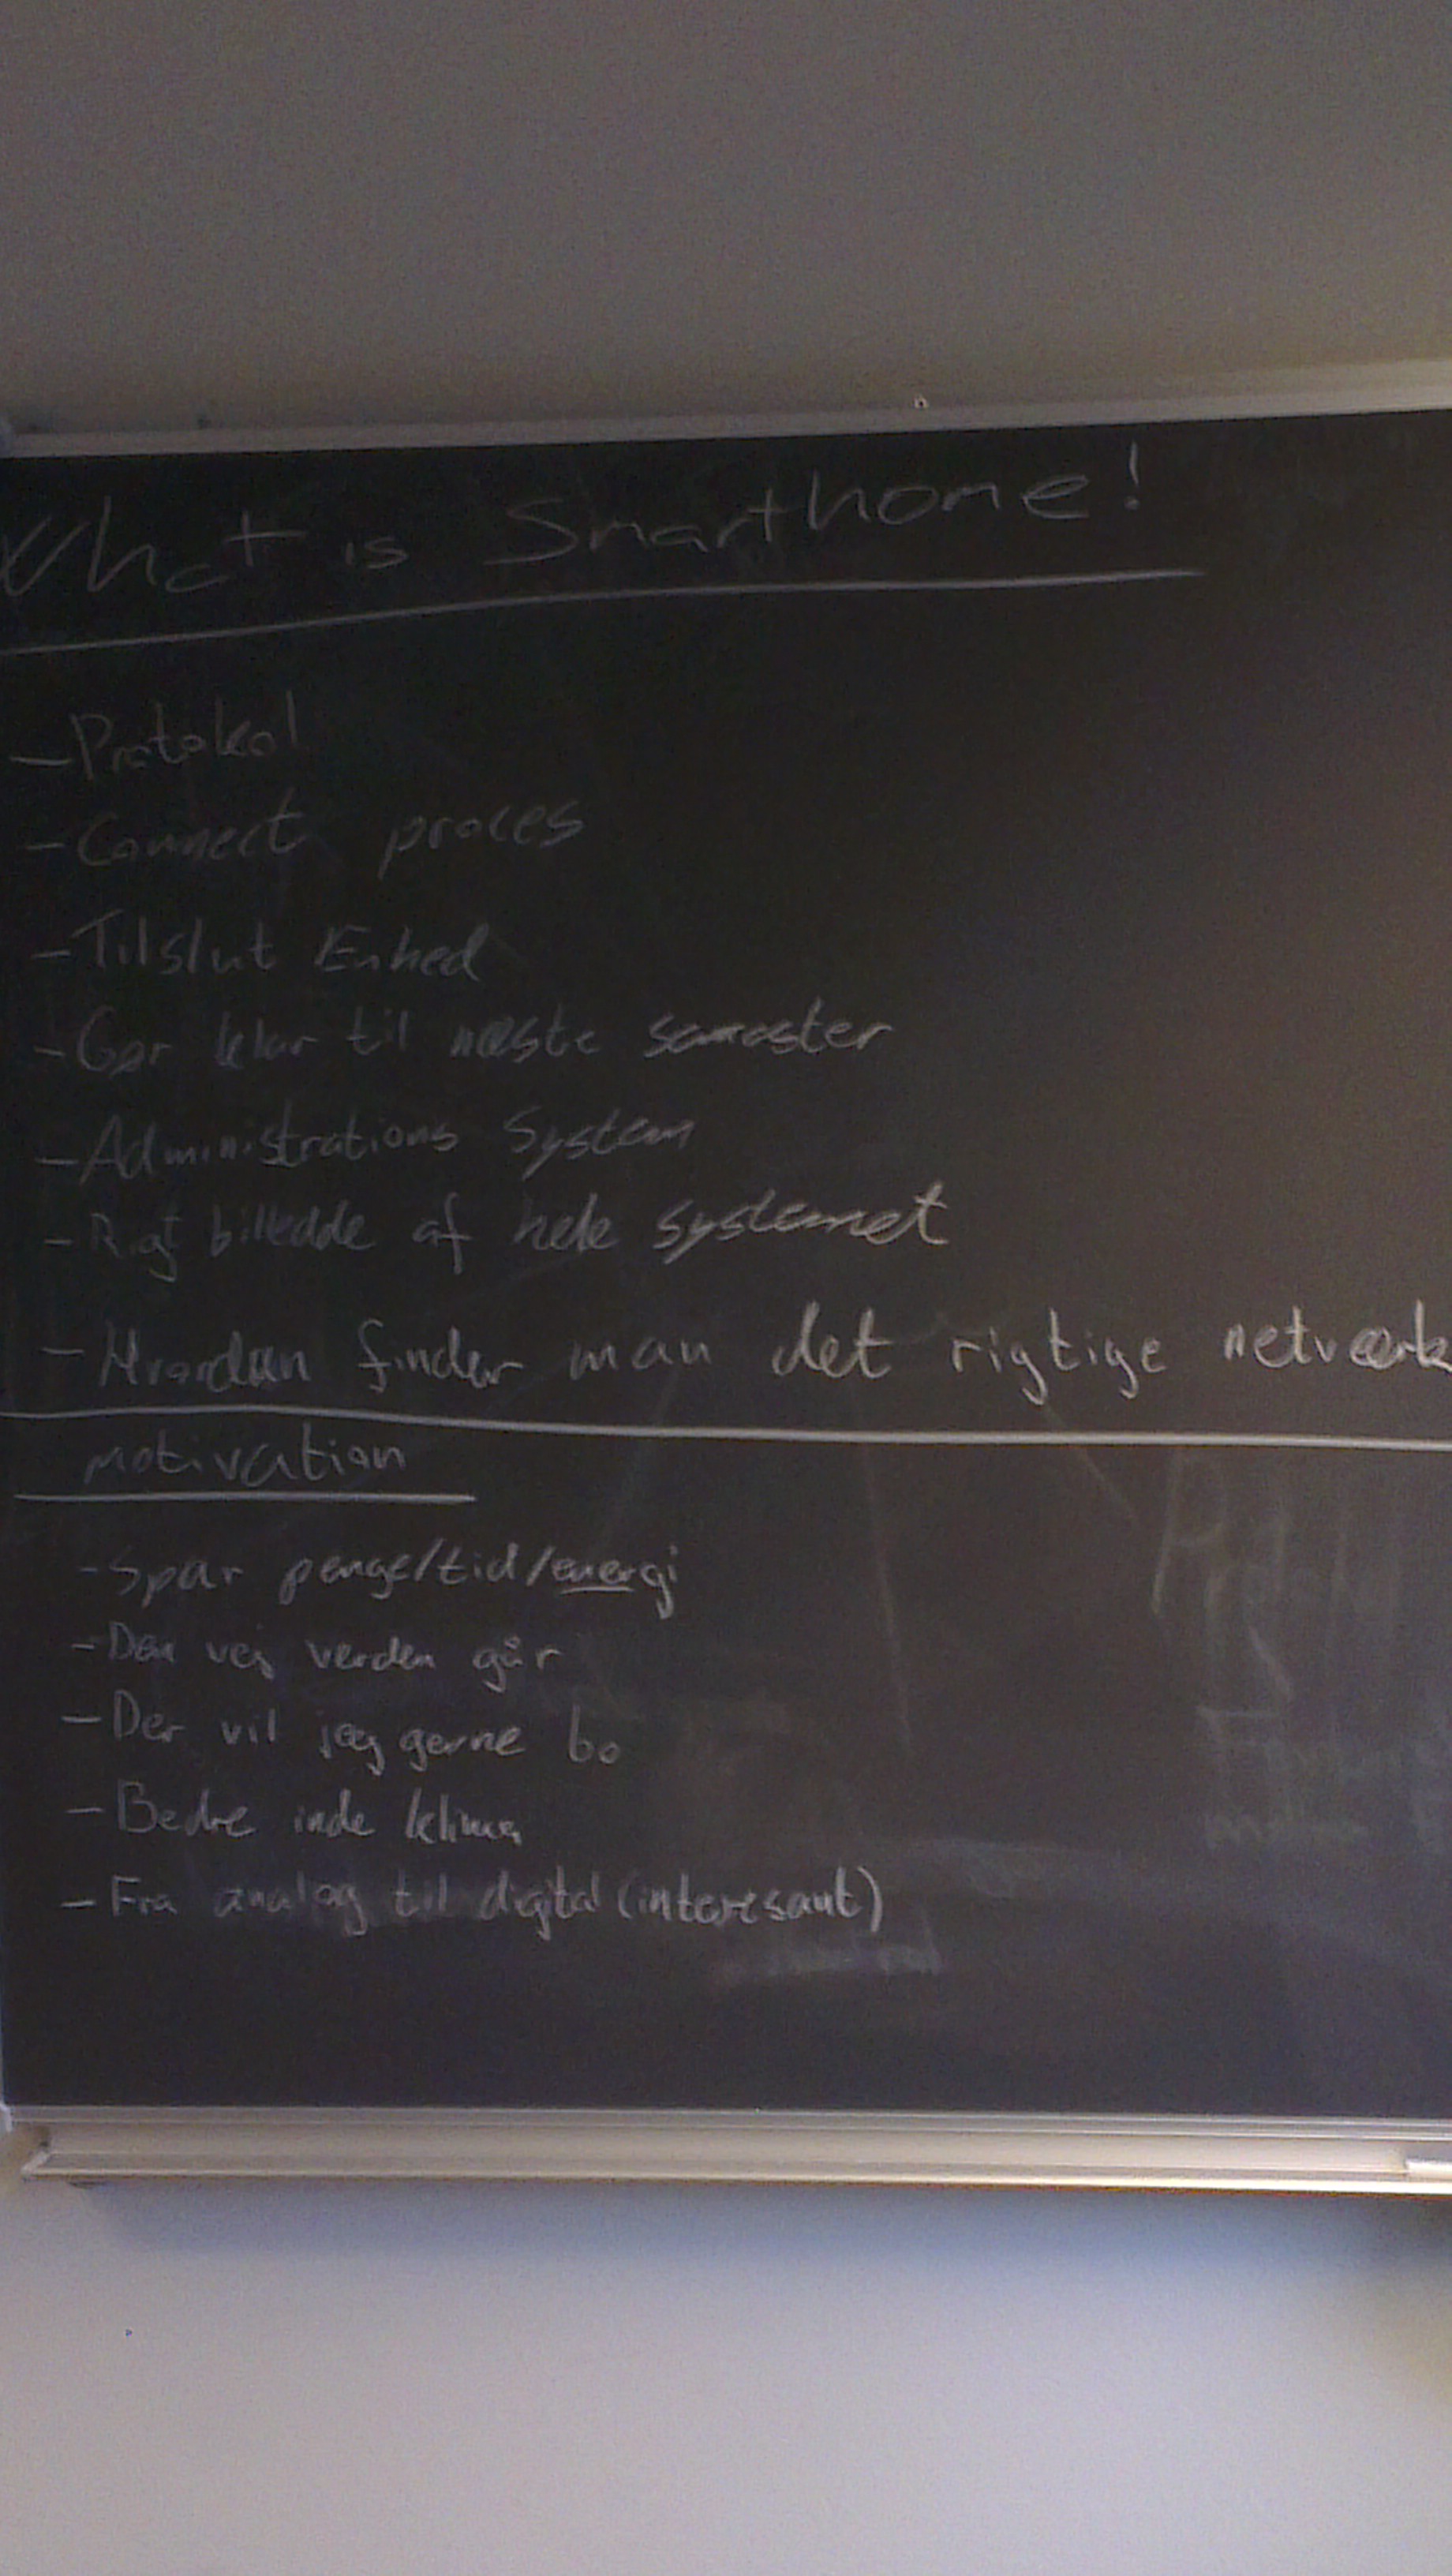 What is Smarthome!
- Protokol
- Connect proces
- Tilslut Enhed
- Gør klar til næste semester
- Administrations System
- Rigt billedde af hele systemet
- Hvordan finder man det rigtige netværk
motivation
- Spar penge/tid/energi
- Den vej verden går
- Der vil jeg gerne bo
- Bedre inde klima
- Fra analog til digital (interesant)